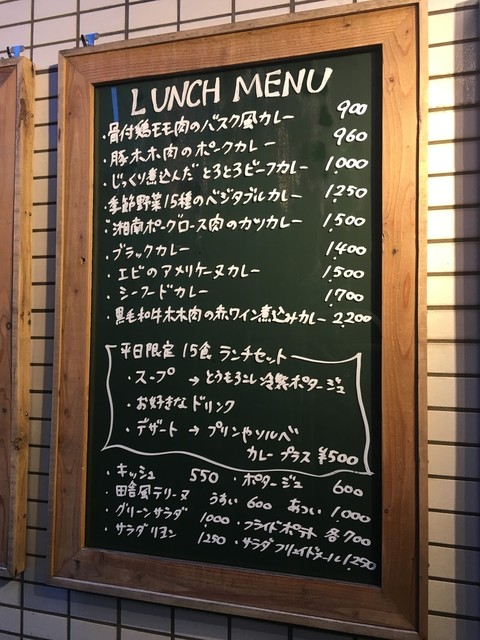 LUNCH MENU
・骨付鶏モモ肉のバスク風カレー 900
・豚ホホ肉のポークカレー 960
・じっくり煮込んだとろとろビーフカレー 1,000
・季節野菜15種のベジタブルカレー 1,250
・湘南ポークロース肉のカツカレー 1,500
・ブラックカレー 1,400
・エビのアメリケーヌカレー 1,500
・シーフードカレー 1,700
・黒毛和牛ホホ肉の赤ワイン煮込みカレー 2,200
平日限定 15食 ランチセット
・スープ → とうもろこし冷製ポタージュ
・お好きなドリンク
・デザート → プリンやソルベ
カレー プラス ¥500
・キッシュ 550 ・ポタージュ 600
・田舎風テリーヌ うすい 600 あつい 1,000
・グリーンサラダ 1,000 ・フライドポテト 各700
・サラダリヨン 1250 ・サラダフリュイドメール 1,250